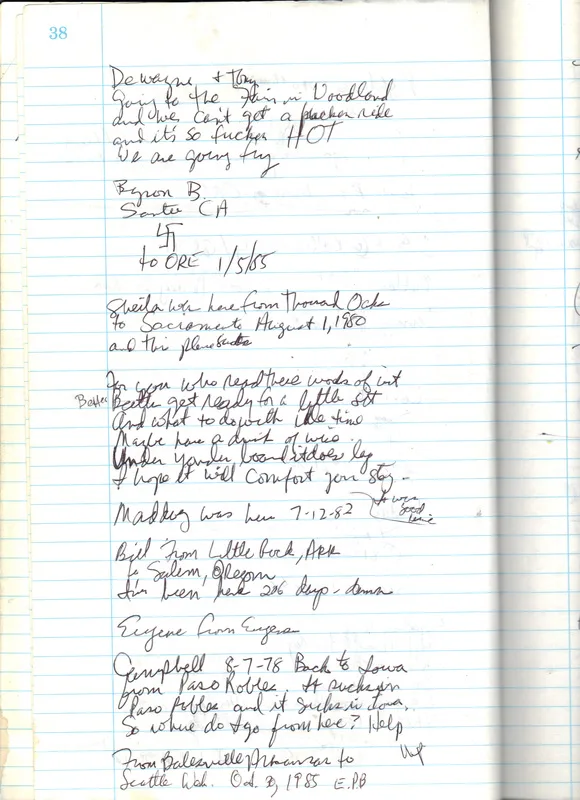 38
Dewayne + Tony
going to the Fair in Woodland
and we can't get a fucken ride
and it's so fucken HOT
We are going fry
Byron B.
Santee CA
to ORE 1/5/85
Sheila was here from Thousand Oaks
to Sacramento August 1, 1980
and this place sucks
For you who read these words of
Better get ready for a little sit
And what to do with the time
Maybe have a drink of wine.
Under yonder board it does lay
I hope it will comfort your stay -
Maddog was here 7-12-82
it was
good
wine
Bill From Little Rock, ARK
to Salem, Oregon
I've been here 206 days - damn
Eugene from Eugene
Campbell 8-7-78 Back to Iowa
from Paso Robles. It sucks in
Paso Robles and it sucks in Iowa.
So where do I go from here? Help
From Batesville Arkansas to
Seattle Wah. Oct. 1985 E.P.B